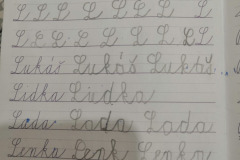 L L L L L L L
L L L L L L L L L L
Lukáš Lukáš Lukáš
Lidka Lidka
Lada Lada Lada
Lenka Lenka Lenka